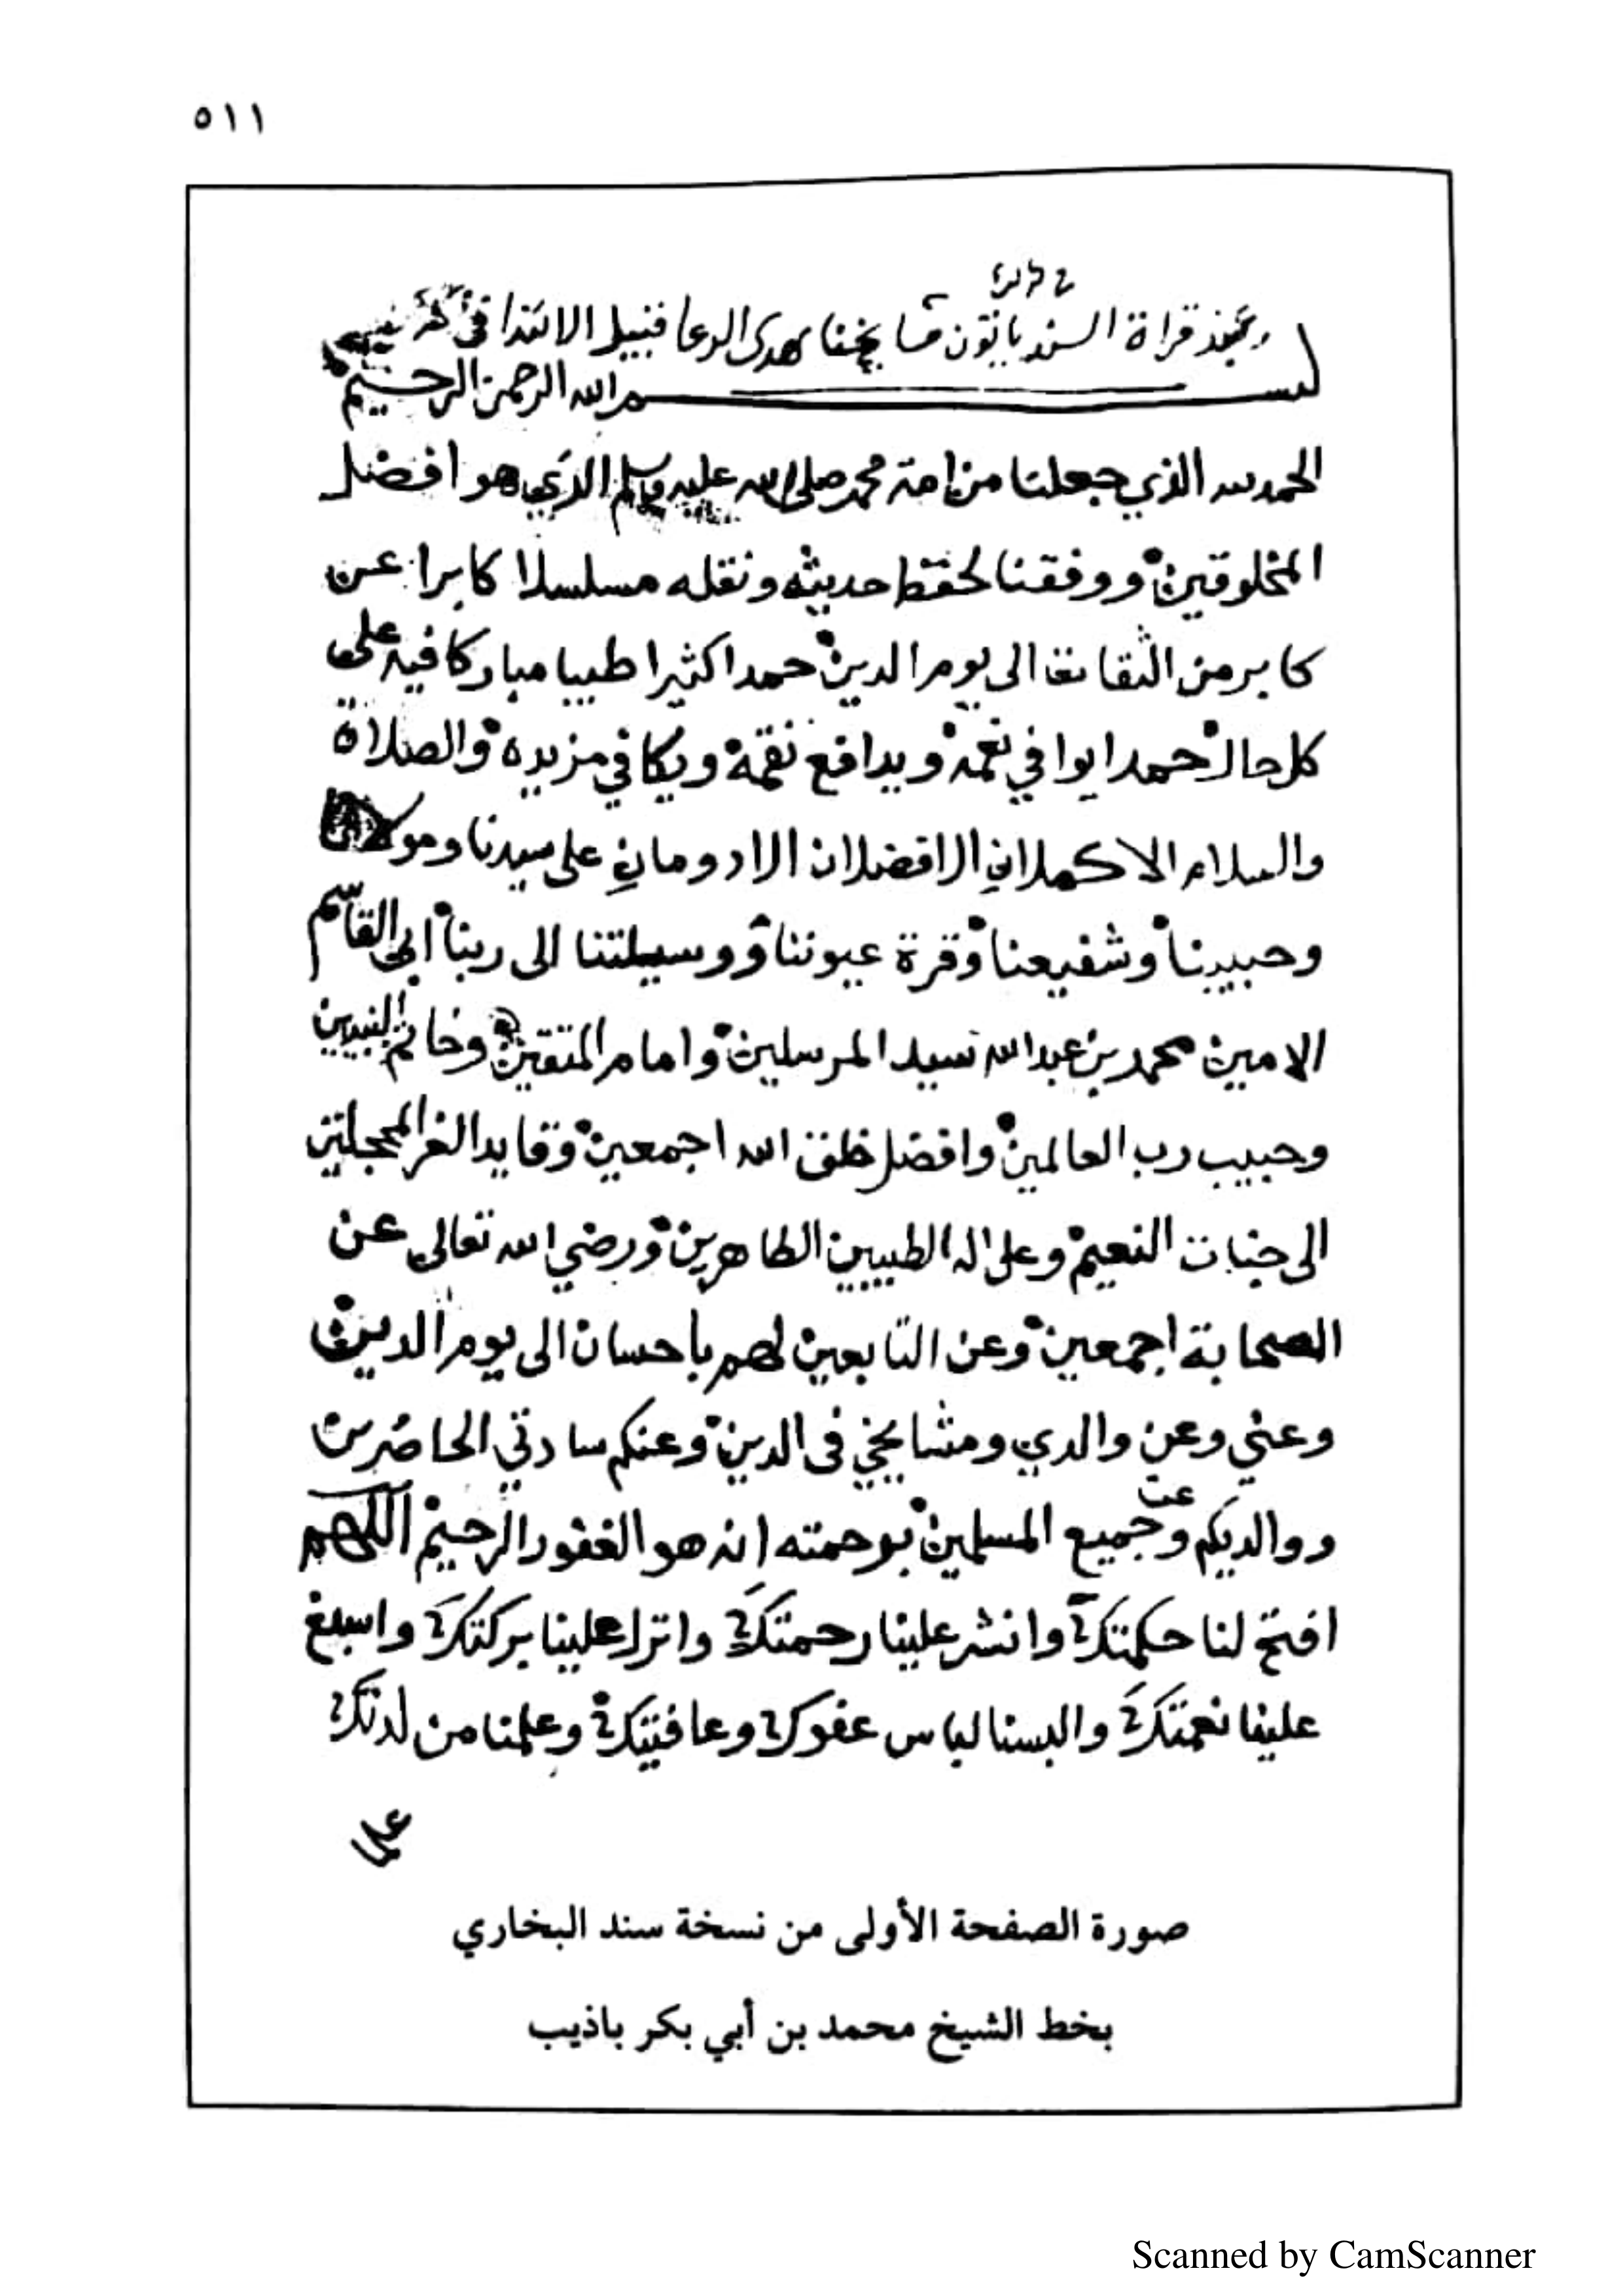 ٥١١
قراة السند ياتون مشايخنا بهذى الدعا قبيل الابتدا فى
بسم الله الرحمن الرحيم
الحمد لله الذي جعلنا من امة محمد صلى الله عليه وسلم الذي هو افضل
المخلوقين ووفقنا لحفظ حديثه ونقله مسلسلا كابرا عن
كابر من الثقات الى يوم الدين حمدا كثيرا طيبا مباركا فيه على
كل حال حمدا يوافي نعمه ويدافع نقمه ويكافي مزيده والصلاة
والسلام الاكملان الافضلان الادومان على سيدنا ومولانا
وحبيبنا وشفيعنا وقرة عيوننا ووسيلتنا الى ربنا ابى القاسم
الامين محمد بن عبد الله سيد المرسلين وامام المتقين وخاتم النبيين
وحبيب رب العالمين وافضل خلق الله اجمعين وقايد الغر المحجلين
الى جنات النعيم وعلى اله الطيبين الطاهرين ورضي الله تعالى عن
الصحابة اجمعين وعن التابعين لهم بأحسان الى يوم الدين
وعني وعن والدي ومشايخي فى الدين وعنكم سادتي الحاضرين
ووالديكم وعن جميع المسلمين برحمته انه هو الغفور الرحيم اللهم
افتح لنا حكمتك وانشر علينا رحمتك وانزل علينا بركتك واسبغ
علينا نعمتك والبسنا لباس عفوك وعافيتك وعلمنا من لدنك
علما
صورة الصفحة الأولى من نسخة سند البخاري
بخط الشيخ محمد بن أبي بكر باذيب
Scanned by CamScanner